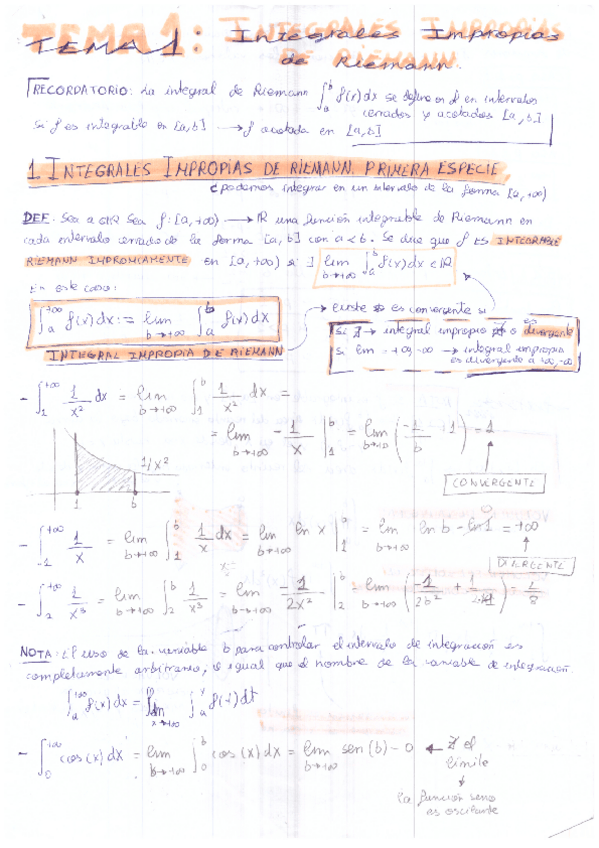 TEMA 1: Integrales Impropias
de Riemann.
RECORDATORIO: La integral de Riemann ∫_a^b f(x) dx se define en intervalos
cerrados y acotados [a, b]
si f es integrable en [a, b] → f acotada en [a, b]
1. INTEGRALES IMPROPIAS DE RIEMANN. PRIMERA ESPECIE.
¿podemos integrar en un intervalo de la forma [a, +∞)
DEF. Sea a ∈ IR Sea f: [a, +∞) → IR una función integrable de Riemann en
cada intervalo cerrado de la forma [a, b] con a < b. Se dice que f ES INTEGRABLE
RIEMANN IMPROPIAMENTE en [a, +∞) si ∃ lim_{b→+∞} ∫_a^b f(x) dx ∈ IR
En este caso:
∫_a^{+∞} f(x) dx := lim_{b→+∞} ∫_a^b f(x) dx
INTEGRAL IMPROPIA DE RIEMANN
→ existe es convergente si
si ∄ → integral impropia ∄ o es divergente
si lim = +∞, -∞ → integral impropia
es divergente a +∞, -∞
- ∫_1^{+∞} 1/x² dx = lim_{b→+∞} ∫_1^b 1/x² dx =
= lim_{b→+∞} -1/x |_1^b = lim_{b→+∞} (-1/b + 1) = 1
CONVERGENTE
1/x²
1 b
- ∫_1^{+∞} 1/x = lim_{b→+∞} ∫_1^b 1/x dx = lim_{b→+∞} ln x |_1^b = lim_{b→+∞} ln b - ln 1 = +∞
0
DIVERGENTE
- ∫_2^{+∞} 1/x³ = lim_{b→+∞} ∫_2^b 1/x³ = lim_{b→+∞} -1/2x² |_2^b = lim_{b→+∞} (-1/2b² + 1/2·4) = 1/8
NOTA: El uso de la variable b para controlar el intervalo de integración es
completamente arbitrario, igual que el nombre de la variable de integración.
∫_a^{+∞} f(x) dx = lim ∫_a^y f(t) dt
- ∫_0^{+∞} cos(x) dx = lim_{b→+∞} ∫_0^b cos(x) dx = lim_{b→+∞} sen(b) - 0 ← ∄ el
límite
↓
la función seno
es oscilante